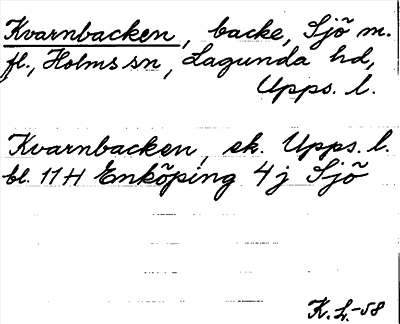 Kvarnbacken, backe, Sjö m.
fl., Holms sn, Lagunda hd,
Upps. l.
Kvarnbacken, ek. Upps. l.
bl. 11H Enköping 4j Sjö
K. L.-58